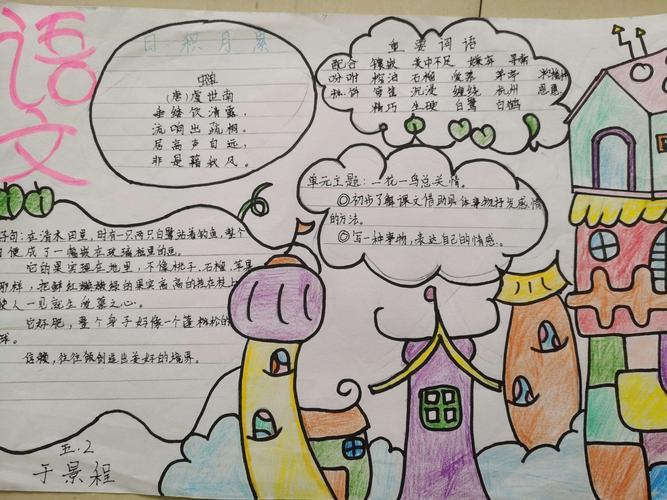 语文
日积月累
蝉
(唐)虞世南
垂緌饮清露,
流响出疏桐。
居高声自远,
非是藉秋风。
重要词语
配合 镶嵌 美中不足 嫌弃 寻常
吩咐 榨油 石榴 爱慕 茅亭
便宜 沉浸 缠绕 杭州
精巧 生硬 白鹭 白鹤
单元主题:一花一鸟总关情。
◎初步了解课文借助具体事物抒发感情
的方法。
◎写一种事物,表达自己的情感。
好句:在清水田里,时有一只两只白鹭站着钓鱼,整个
便成了一幅嵌在玻璃框里的
它的果实埋在地里,不像桃子、石榴、苹果
那样,把鲜红嫩绿的果实高高的挂在枝上
使人一见就生爱慕之心。
它好肥,整个身子好像一个蓬松的
球。
信赖,往往能创造出美好的境界。
五.2
于景程